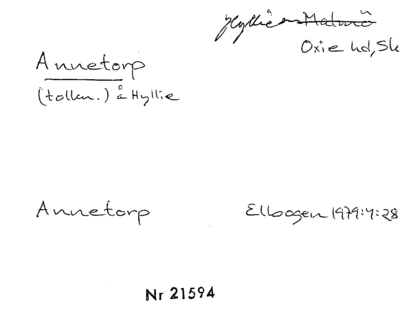 Hyllie Malmö
Oxie hd, Sk
Annetorp
(tolkn.) å Hyllie
Annetorp Elbogen 1979:4:28
Nr 21594